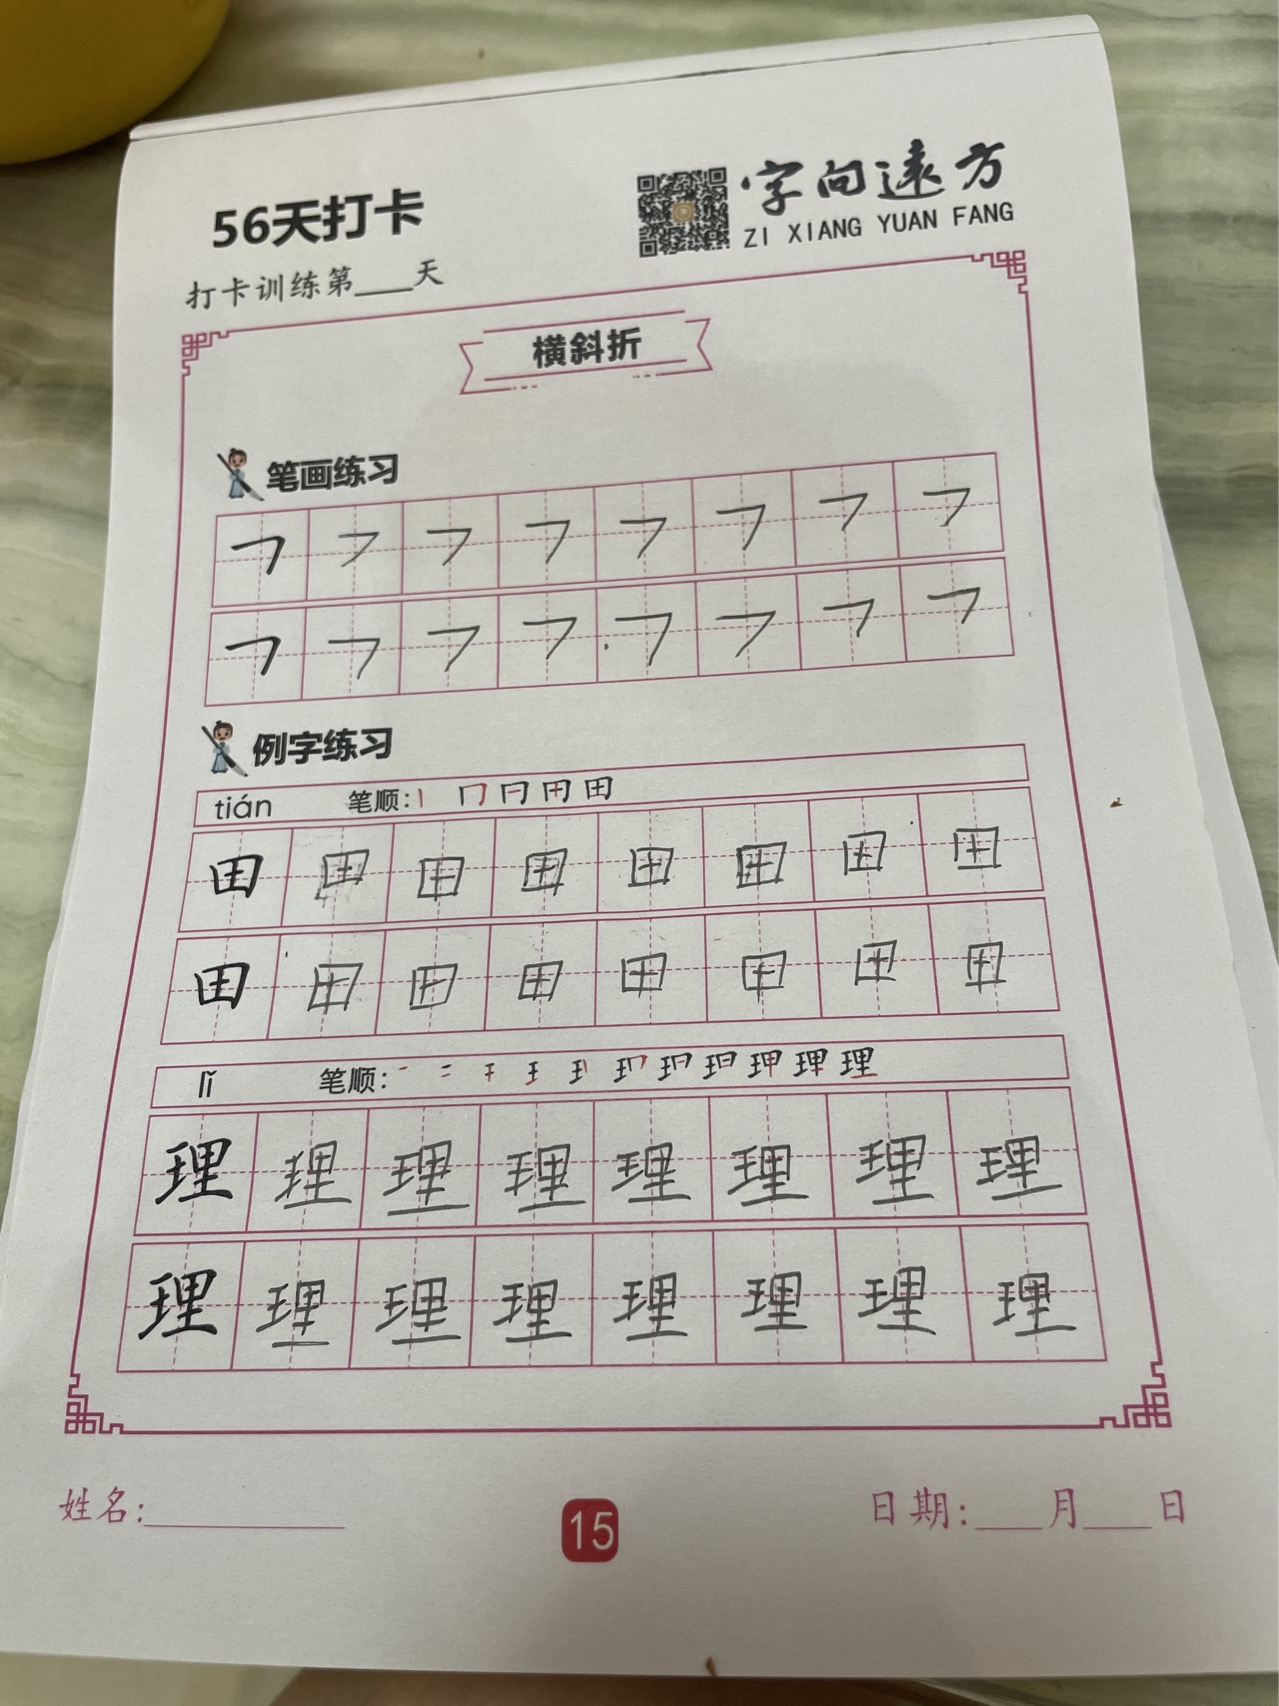 56天打卡
字向远方
ZI XIANG YUAN FANG
打卡训练第___天
横斜折
笔画练习
㇇ ㇇ ㇇ ㇇ ㇇ ㇇ ㇇ ㇇
㇇ ㇇ ㇇ ㇇ ㇇ ㇇ ㇇ ㇇
例字练习
tián 笔顺:
田 田 田 田 田 田 田 田
田 田 田 田 田 田 田 田
lǐ 笔顺:
理 理 理 理 理 理 理 理
理 理 理 理 理 理 理 理
姓名:__________
15
日期:___月___日